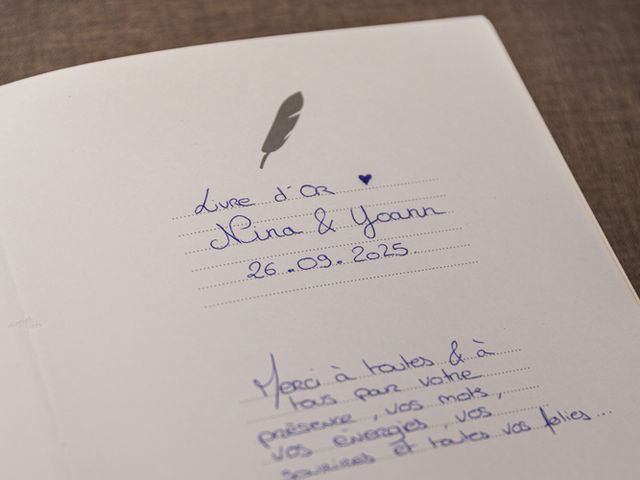 Livre d'Or ♥
Nina & Yoann
26.09.2025
Merci à toutes & à
tous pour votre
présence, vos mots,
vos énergies, vos
sourires et toutes vos folies...